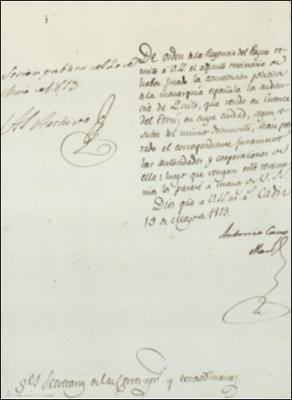 Sesion publica del 20 de
Mayo de 1813.
Al Archivo
De orden de la Regencia del Reyno re-
mito á V.SS. el adjunto testimonio de
haber jurado la constitucion politica
de la monarquia española la audien-
cia de Quito, que reside en Cuenca
del Perú; en cuya ciudad, segun re-
sulta del mismo documento, han pres-
tado el correspondiente juramento
las autoridades y corporaciones de
ella: luego que vengan estos testimo-
nios los pasaré á manos de V.SS.
Dios gue á V.SS. m. a. Cadiz
19 de Mayo de 1813.
Antonio Cano
Man
Secretarios de las Cortes gen. y extraordinarias.